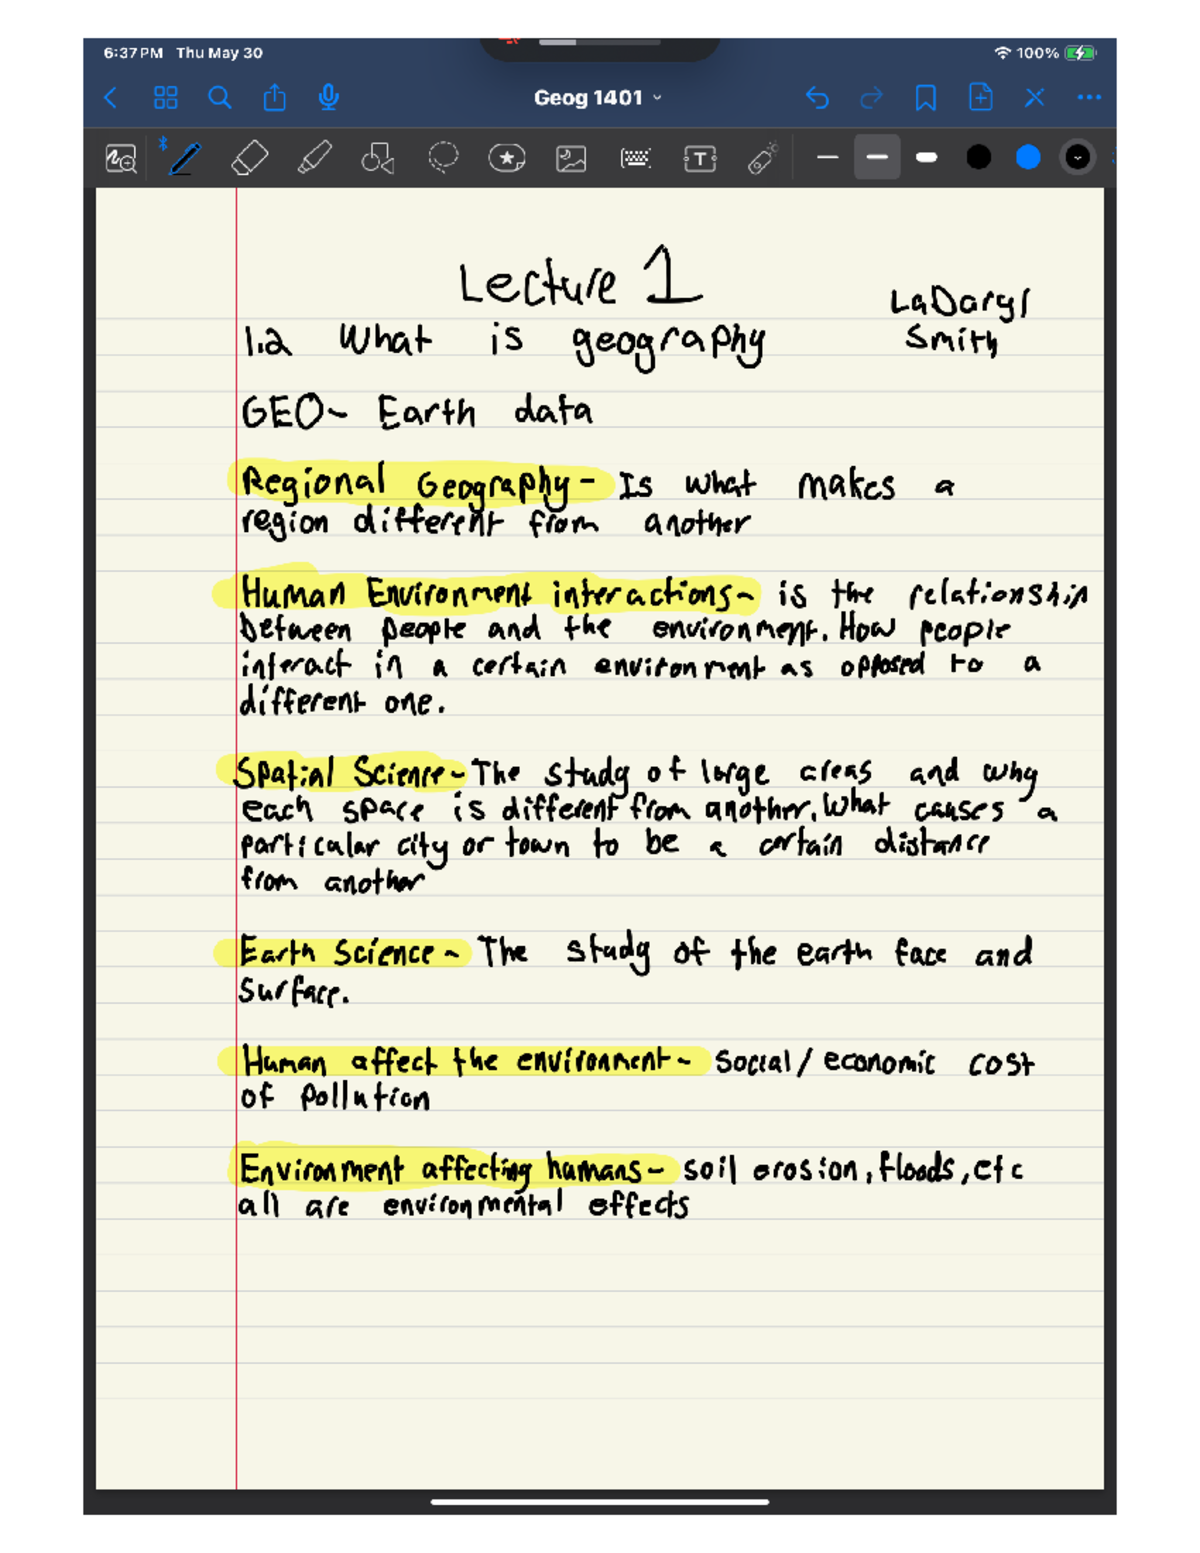 6:37 PM Thu May 30
100%
Geog 1401
Lecture 1
LaDaryl
Smith
1.2 What is geography
GEO- Earth data
Regional Geography - Is what makes a
region different from another
Human Environment interactions- is the relationship
between people and the environment. How people
interact in a certain environment as opposed to a
different one.
Spatial Science- The study of large areas and why
each space is different from another. What causes a
particular city or town to be a certain distance
from another
Earth Science - The study of the earth face and
surface.
Human affect the environment- Social/economic cost
of pollution
Environment affecting humans- soil erosion, floods, etc
all are environmental effects